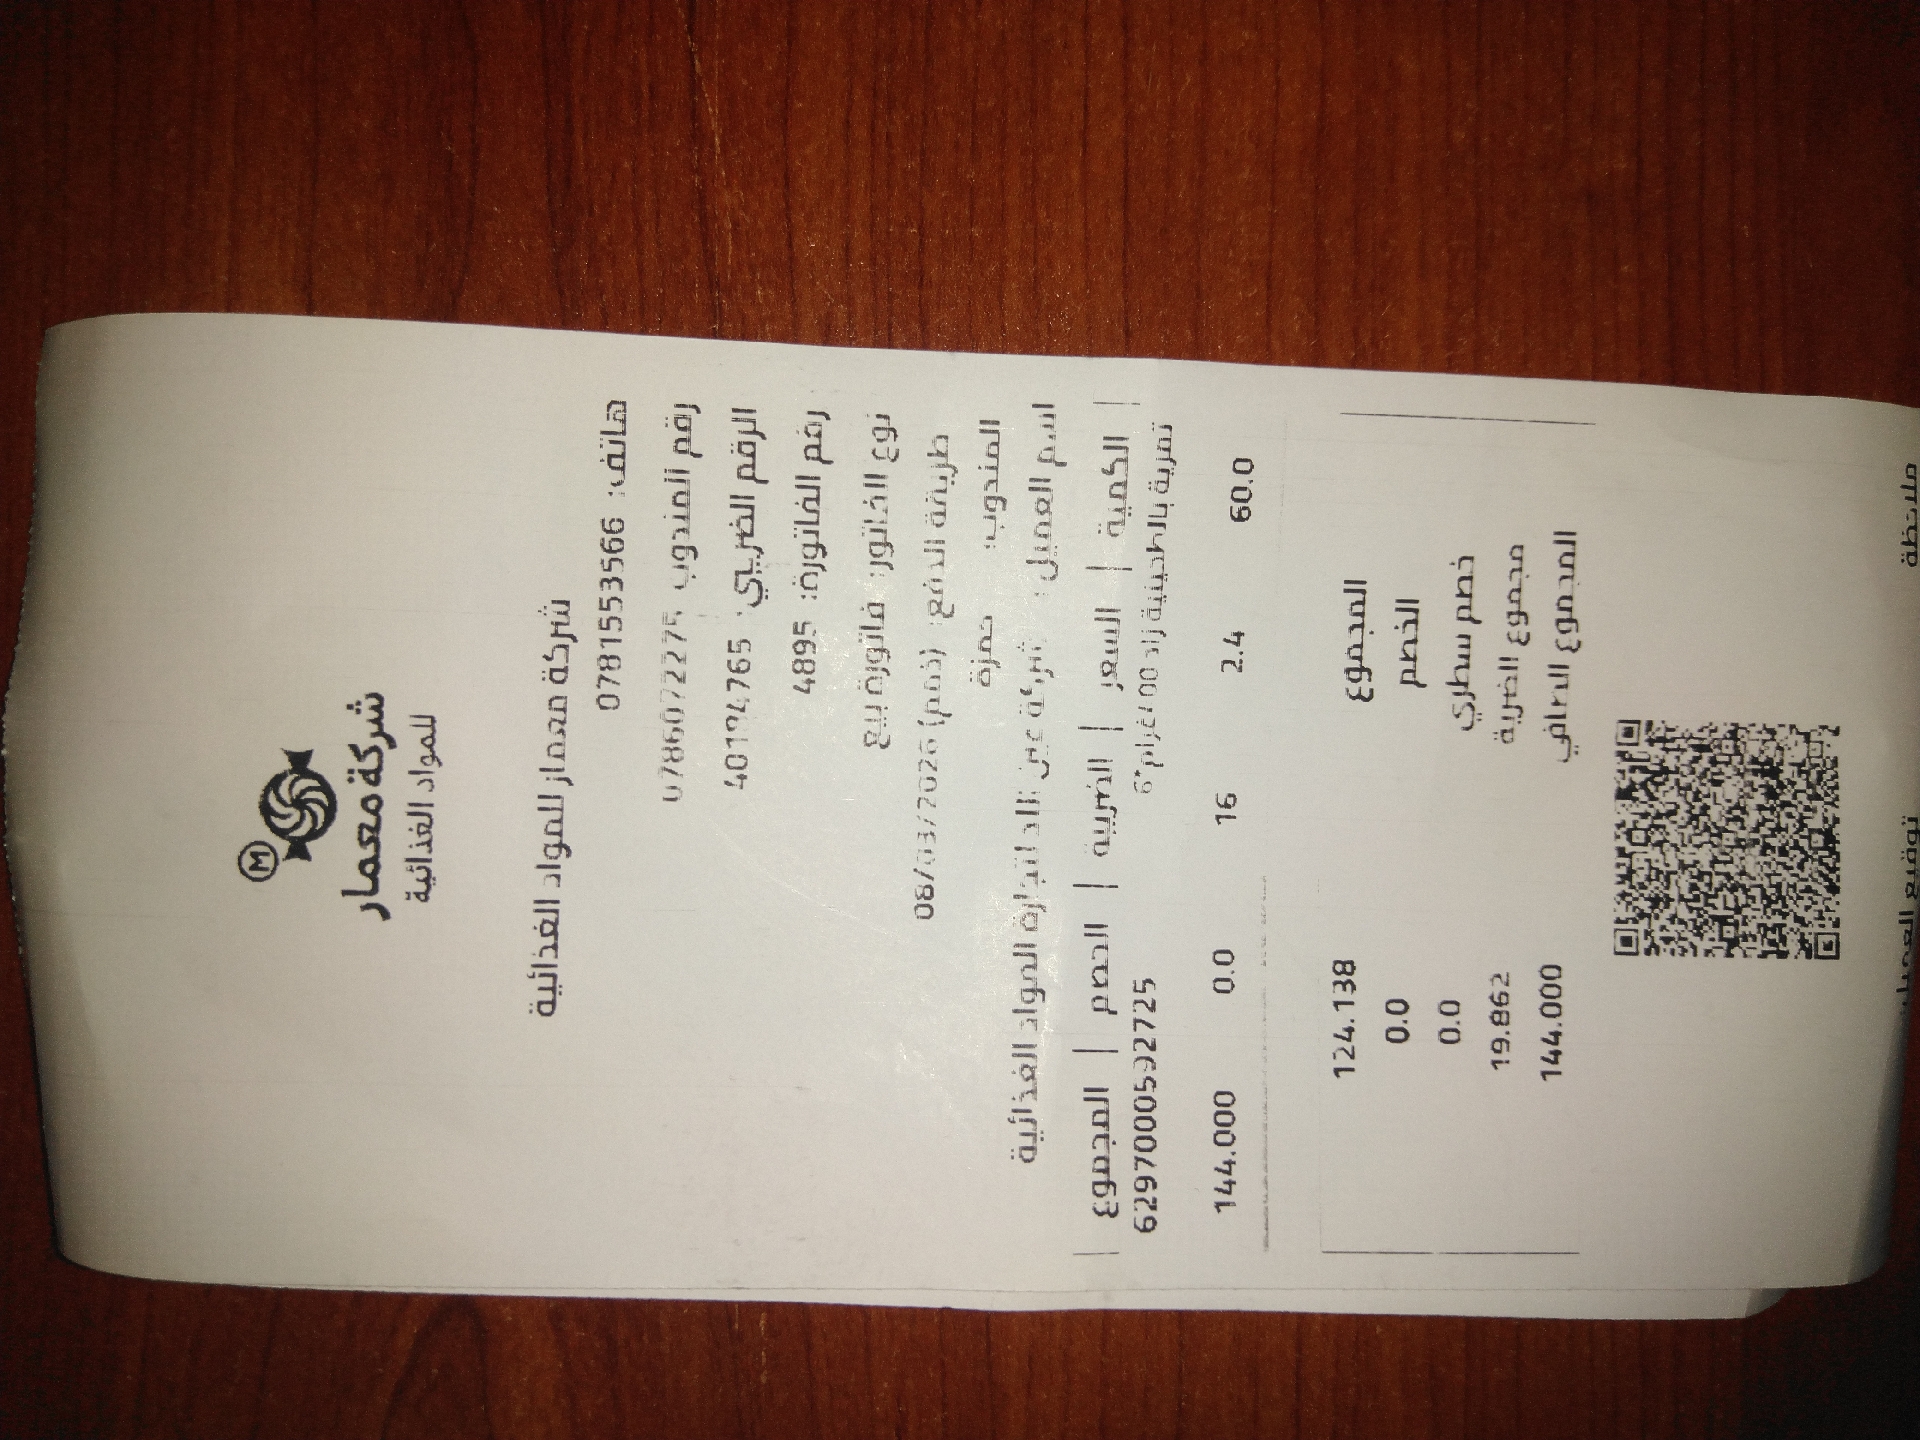 M
شركة معمار
للمواد الغذائية
شركة معمار للمواد الغذائية
هاتف: 0781553566
رقم المندوب 0786072275
الرقم الضريبي: 40194765
رقم الفاتورة: 4895
نوع الفاتور: فاتورة بيع
طريقة الدفع: (ذمم) 08/03/2026
المندوب: حمزة
اسم العميل: شركة عين الد لتجارة المواد الغذائية
| الكمية | السعر | الضريبة | الخصم | المجموع |
تمرية بالطحينية زاد 400غرام*6 6297000592725
60.0 2.4 16 0.0 144.000
المجموع 124.138
الخصم 0.0
خصم سطري 0.0
مجموع الضريبة 19.862
المجموع الصافي 144.000
ملاحظة